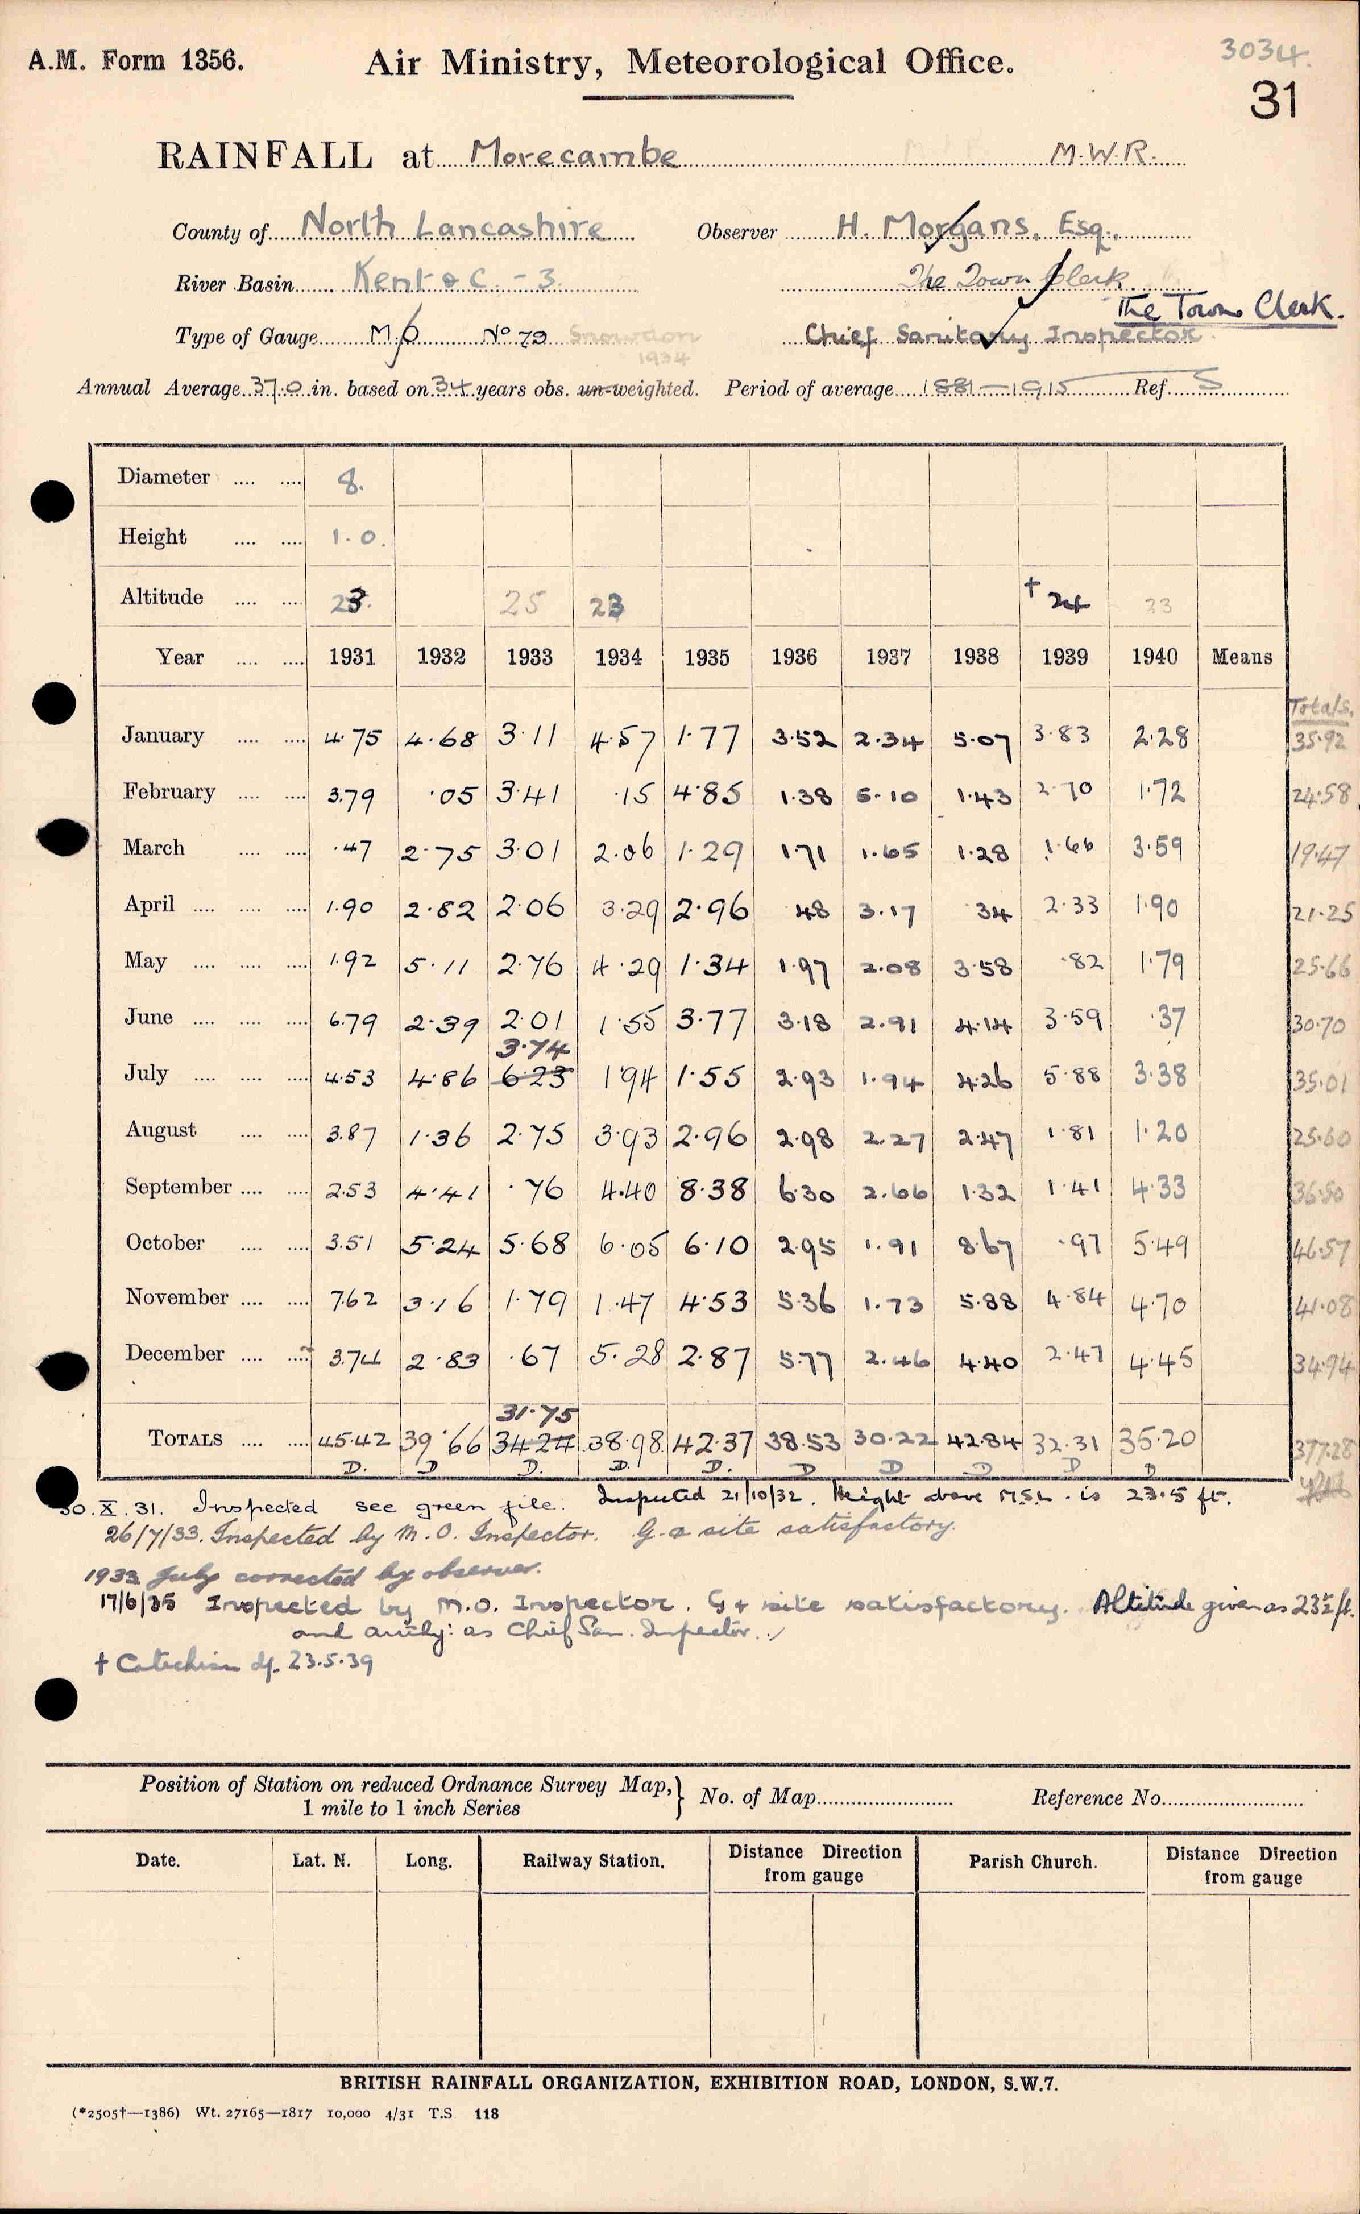 3034.
A.M. Form 1356. Air Ministry, Meteorological Office. 31
RAINFALL at Morecambe M.W.R.
County of North Lancashire Observer H. Morgans, Esq.,
River Basin Kent & C. - 3 The Town Clerk
The Town Clerk.
Type of Gauge M.O. No 79 Snowdon 1934 Chief Sanitary Inspector
Annual Average 37.0 in. based on 34 years obs. un-weighted. Period of average 1881-1915 Ref. S
Diameter 8.
Height 1.0
Altitude 23. 25 23 † 24 23
Year 1931 1932 1933 1934 1935 1936 1937 1938 1939 1940 Means
Totals.
January 4.75 4.68 3.11 4.57 1.77 3.52 2.34 5.07 3.83 2.28 35.92
February 3.79 .05 3.41 .15 4.85 1.38 5.10 1.43 2.70 1.72 24.58
March .47 2.75 3.01 2.06 1.29 1.71 1.65 1.28 1.66 3.59 19.47
April 1.90 2.82 2.06 3.29 2.96 .48 3.17 .34 2.33 1.90 21.25
May 1.92 5.11 2.76 4.29 1.34 1.97 2.08 3.58 .82 1.79 25.66
June 6.79 2.39 2.01 1.55 3.77 3.18 2.91 4.14 3.59 .37 30.70
3.74
July 4.53 4.86 6.23 1.94 1.55 2.93 1.94 4.26 5.88 3.38 35.01
August 3.87 1.36 2.75 3.93 2.96 2.98 2.27 2.47 1.81 1.20 25.60
September 2.53 4.41 .76 4.40 8.38 6.30 2.66 1.32 1.41 4.33 36.50
October 3.51 5.24 5.68 6.05 6.10 2.95 1.91 8.67 .97 5.49 46.57
November 7.62 3.16 1.79 1.47 4.53 5.36 1.73 5.88 4.84 4.70 41.08
December 3.74 2.83 .67 5.28 2.87 5.77 2.46 4.40 2.47 4.45 34.94
31.75
TOTALS 45.42 39.66 34.24 38.98 42.37 38.53 30.22 42.84 32.31 35.20 377.28
D. D D. D. D. D D D D D
30.X.31. Inspected see green file. Inspected 21/10/32. Height above M.S.L. is 23.5 ft.
26/7/33. Inspected by M.O. Inspector. G. & site satisfactory.
1933 July corrected by observer.
17/6/35 Inspected by M.O. Inspector. G & site satisfactory. Altitude given as 23½ ft.
and as Chief San. Inspector.
† Catechism of 23.5.39
Position of Station on reduced Ordnance Survey Map, } No. of Map Reference No.
1 mile to 1 inch Series
Date. Lat. N. Long. Railway Station. Distance Direction from gauge Parish Church. Distance Direction from gauge
BRITISH RAINFALL ORGANIZATION, EXHIBITION ROAD, LONDON, S.W.7.
(*2505†—1386) Wt. 27165—1817 10,000 4/31 T.S 118